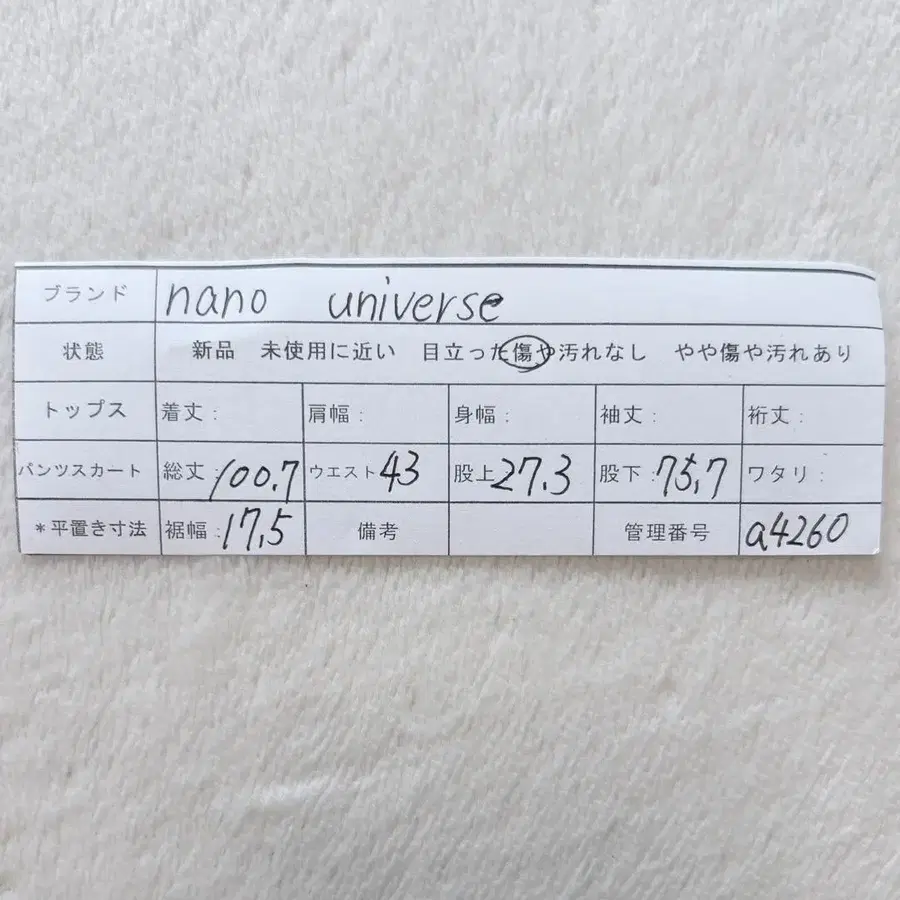 ブランド nano universe
状態 新品 未使用に近い 目立った傷や汚れなし やや傷や汚れあり
トップス 着丈: 肩幅: 身幅: 袖丈: 裄丈:
パンツスカート 総丈:100.7 ウエスト43 股上27.3 股下:75.7 ワタリ:
*平置き寸法 裾幅:17.5 備考 管理番号 a4260